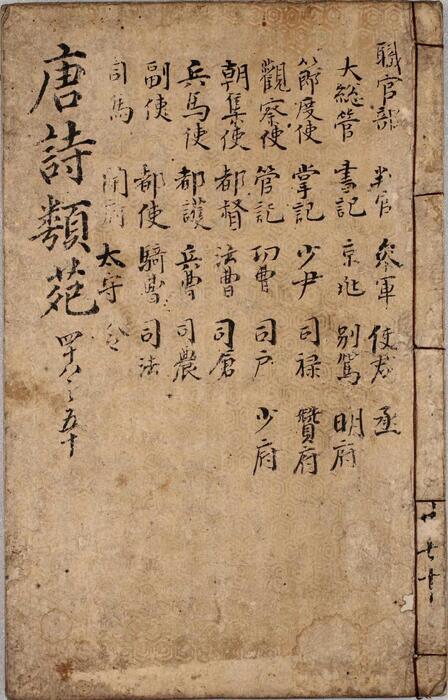 職官部 判官 參軍 使君 丞
大総管 書記 京兆 別駕 明府
節度使 掌記 少尹 司祿 贊府
觀察使 管記 功曹 司戶 少府
朝集使 都督 法曹 司倉
兵馬使 都護 兵曹 司農
副使 都使 騎曹 司法
司馬 開府 太守 令
唐詩類苑 四十八之五十